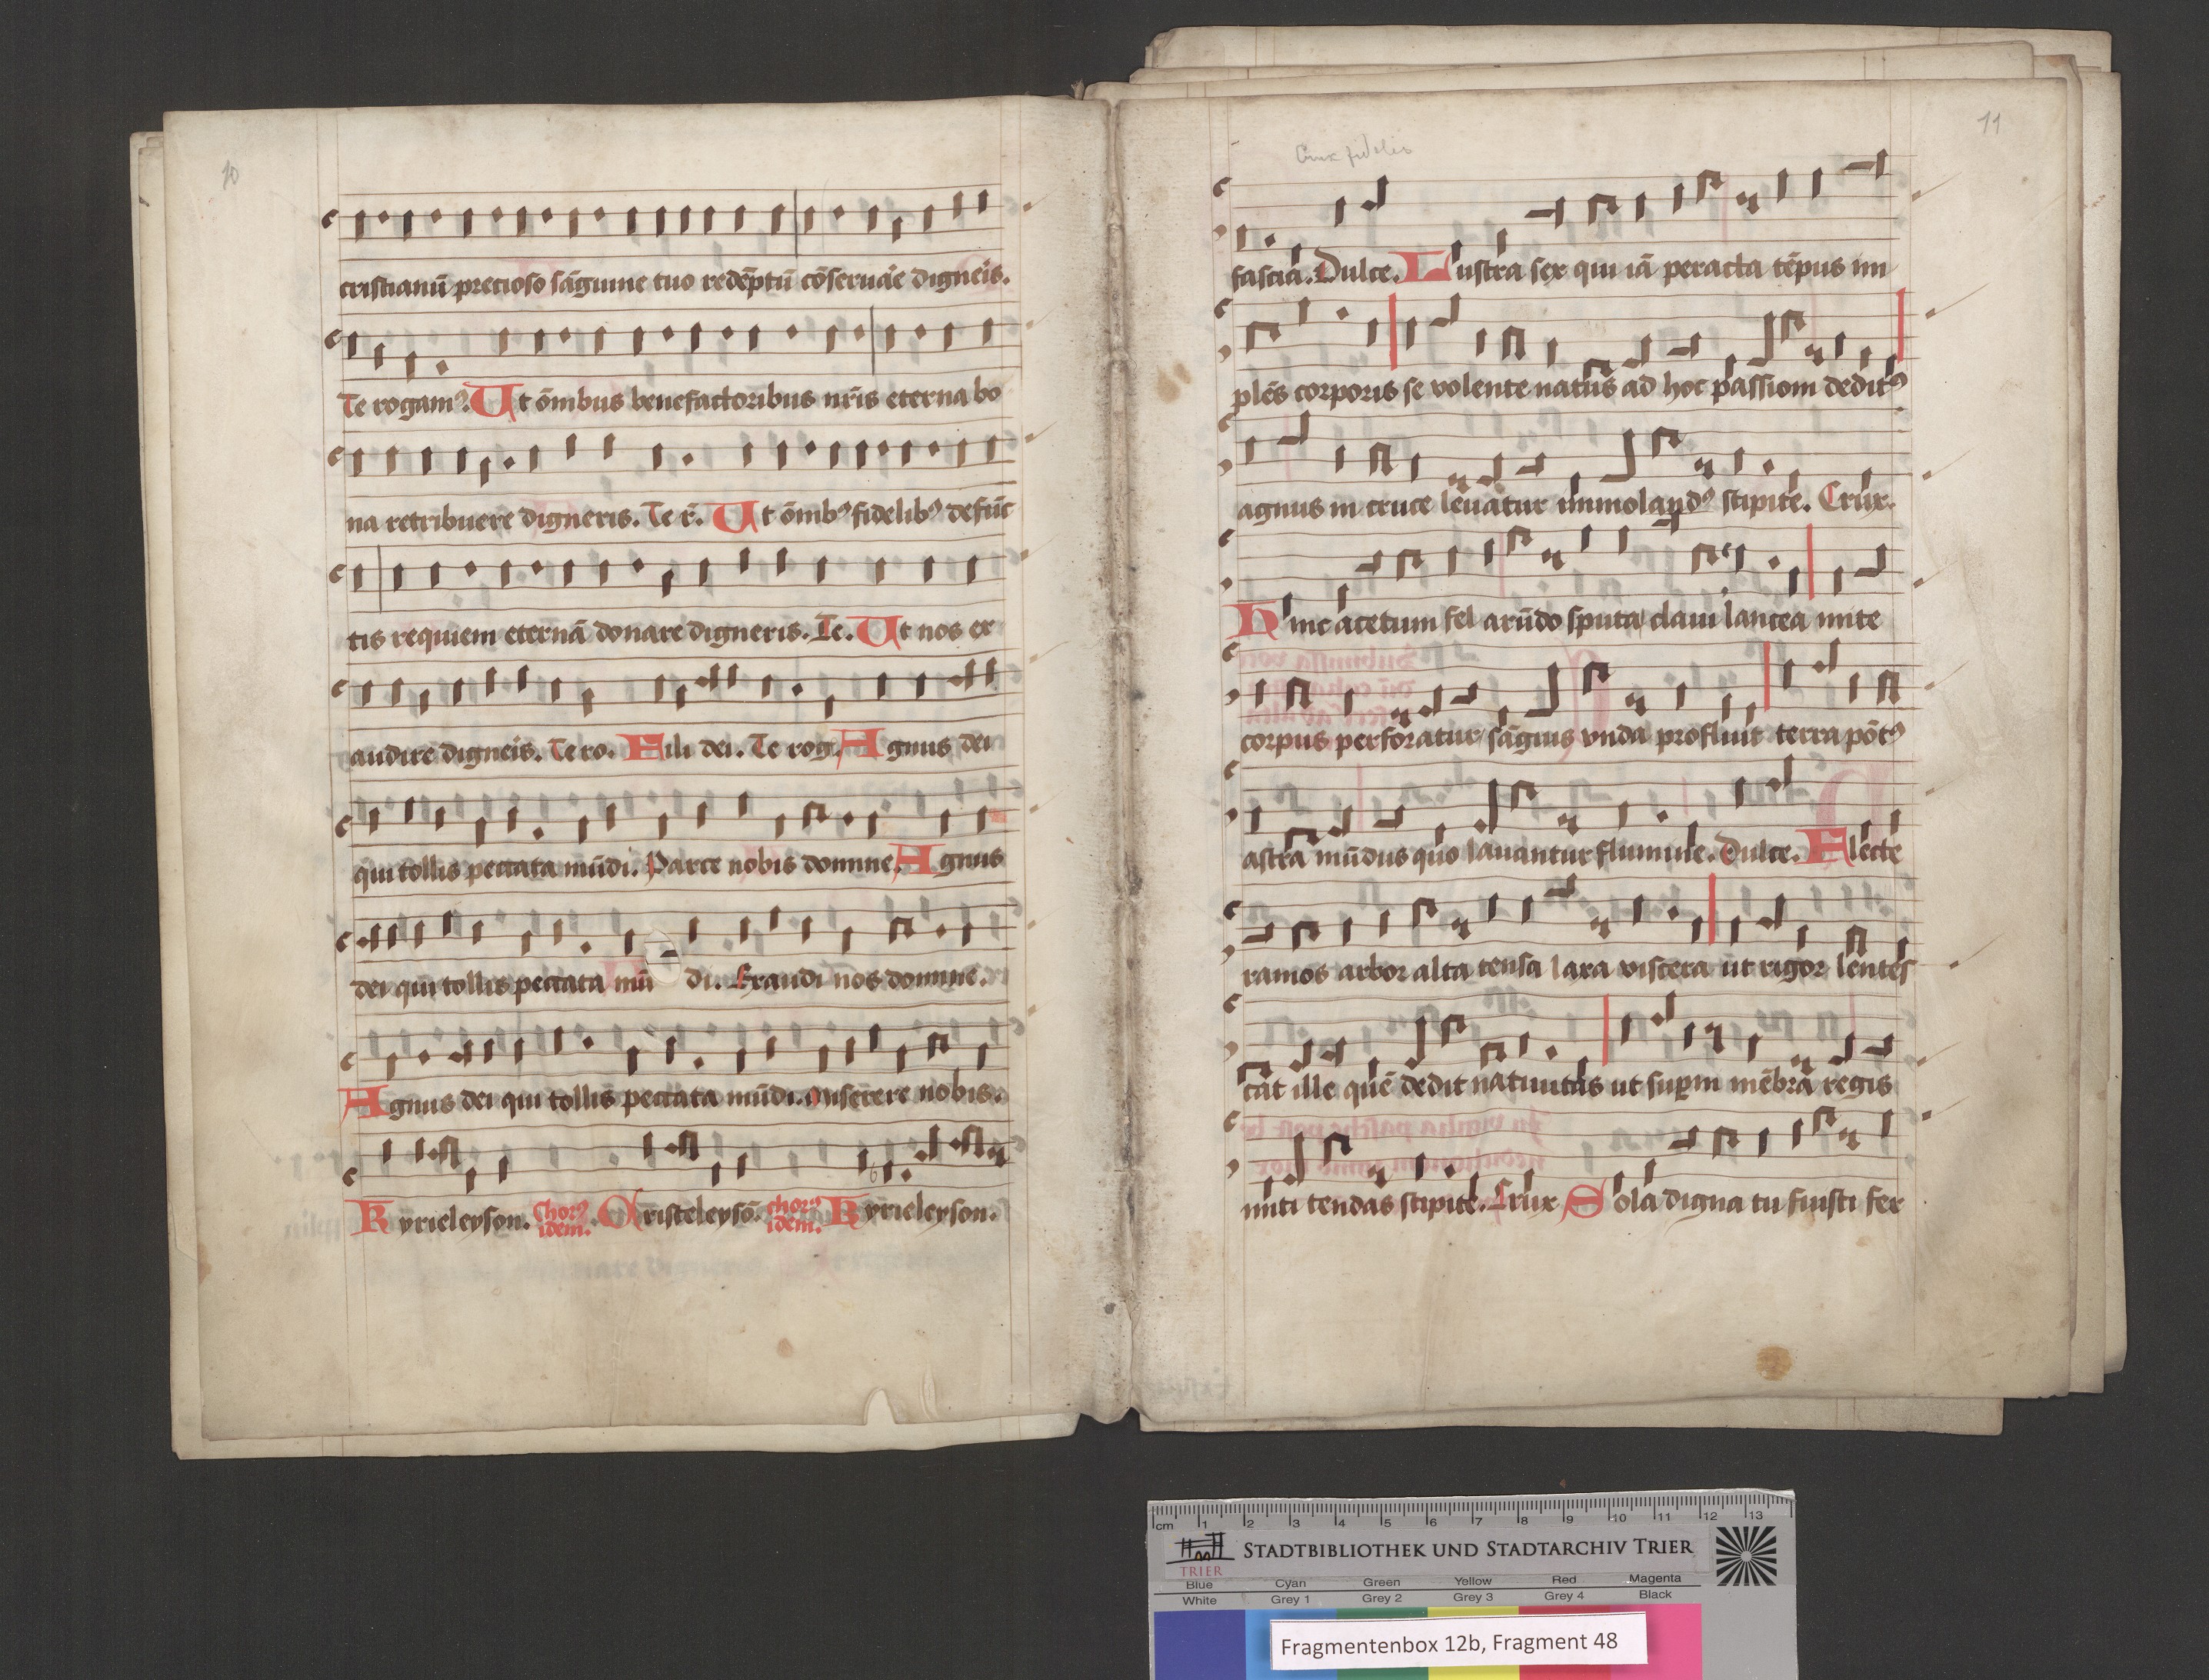 10
cristianū precioso sāguine tuo redēptū cōseruar̄e digneis.
Te rogamꝰ. Ut ōmibus benefactoribus nr̄is eterna bo
na retribuere digneris. Te r̄. Ut ōmibꝰ fidelibꝰ defūc
tis requiem eternā donare digneris. Te. Ut nos ex
audire digneis. Te ro. Fili dei. Te rog. Agnus dei
qui tollis peccata mūdi. Parce nobis domine. Agnus
dei qui tollis peccata mū di. Exaudi nos domine.
Agnus dei qui tollis peccata mūdi. Miserere nobis.
Kyrieleyson. Chorꝰ idem. Cristeleysō. chorꝰ idem. Kyrieleyson.
11
Crux fidelis
fascia. Dulce. Lustra sex qui iā peracta tēpus im
plēs corporis se volente natus ad hoc passiom deditꝰ
agnus in cruce leuatur immolandꝰ stipite. Crux.
Hinc acetum fel arūdo sputa claui lancea mite
corpus perforatur sāguis vnda profluit terra pōtꝰ
astra mūdus quo lauantur flumine. Dulce. Flecte
ramos arbor alta tensa laxa viscera ut rigor lentes
cat ille quē dedit natiuitas ut suꝑni mēbra regis
miti tendas stipite. Crux Sola digna tu fuisti fer
cm 1 2 3 4 5 6 7 8 9 10 11 12 13
TRIER
STADTBIBLIOTHEK UND STADTARCHIV TRIER
Blue Cyan Green Yellow Red Magenta
White Grey 1 Grey 2 Grey 3 Grey 4 Black
Fragmentenbox 12b, Fragment 48